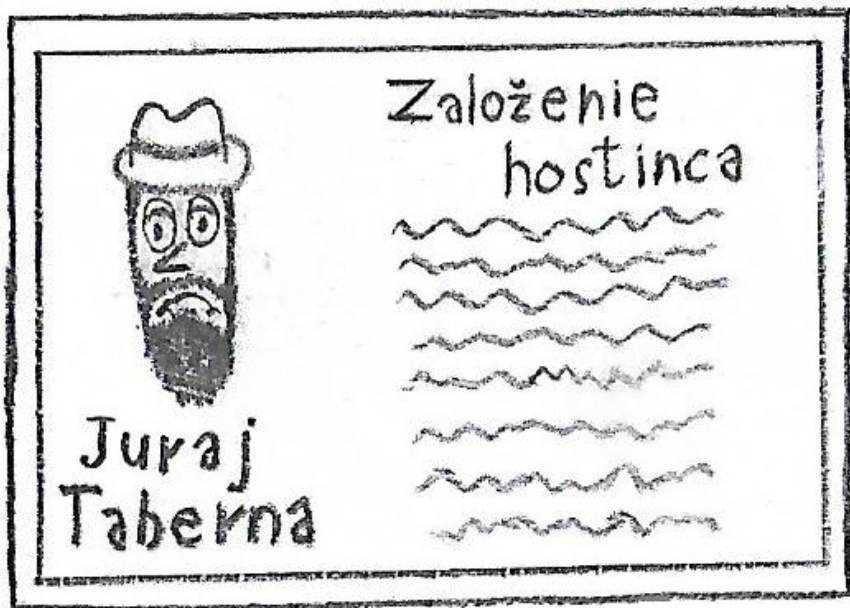 Založenie
hostinca
Juraj
Taberna